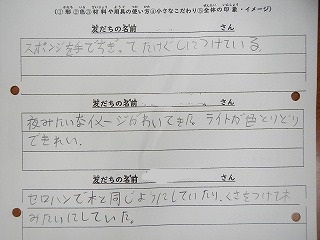 (①形 ②色 ③材料や用具の使い方 ④小さなこだわり ⑤全体の印象・イメージ)
友だちの名前 さん
スポンジを手でちぎってたけぐしにつけている
友だちの名前 さん
夜みたいなイメージがわいてきた。ライトが色とりどり
できれい。
友だちの名前 さん
セロハンで木と同じようにしていたり、くさをつけて木
みたいにしていた。